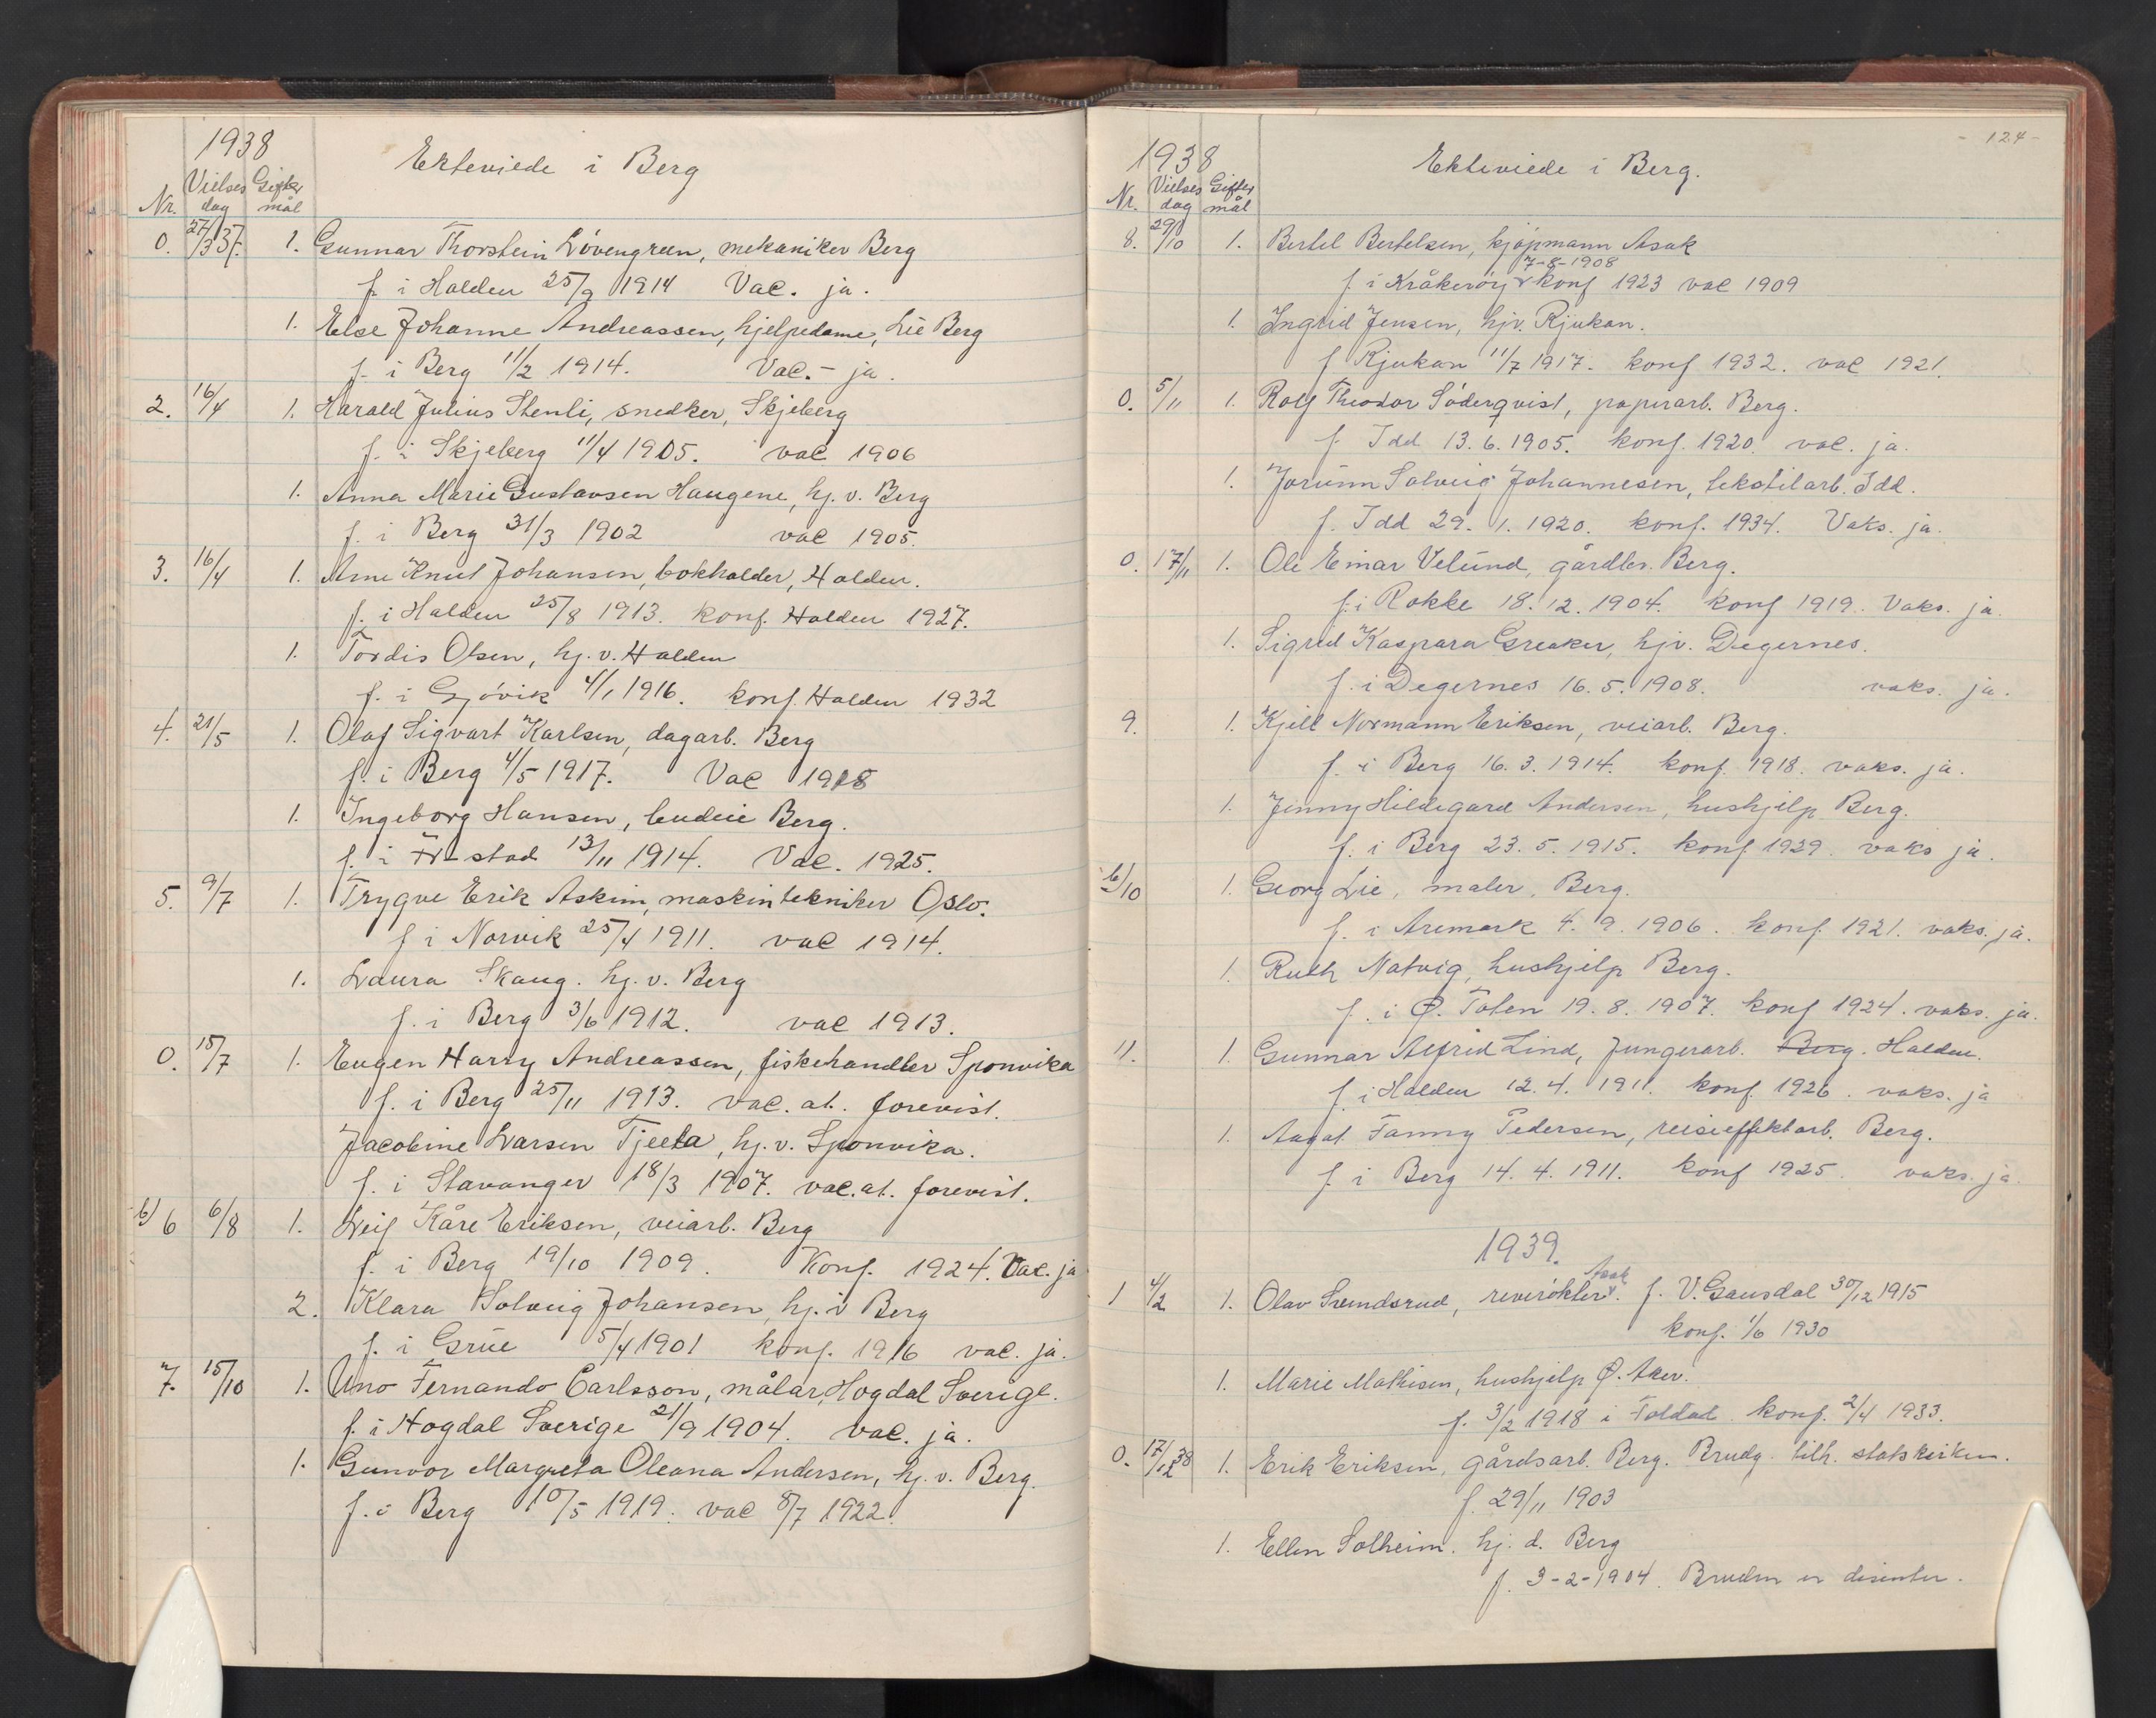 1938
Ekteviede i Berg
Nr. Vielses dag Gifter mål
0. 27/3 37. 1. Gunnar Thorstein Lövengreen, mekaniker Berg
f. i Halden 25/9 1914 Vac. ja.
1. Else Johanne Andreassen, hjelpedame, Lie Berg
f. i Berg 11/2 1914. Vac. - ja.
2. 16/4 1. Harald Julius Stenli, snedker, Skjeberg
f. i Skjeberg 11/4 1905. vac 1906
1. Anna Marie Gustavsen Haugene, hj. v. Berg
f. i Berg 31/3 1902 vac 1905.
3. 16/4 1. Arne Knut Johansen, bokholder, Halden.
f. i Halden 25/8 1913. konf. Halden 1927.
1. Tordis Olsen, hj. v. Halden
f. i Gjövik 4/1 1916. konf. Halden 1932
4. 21/5 1. Olaf Sigvart Karlsen, dagarb. Berg
f. i Berg 4/5 1917. Vac 1918
1. Ingeborg Hansen, budeie Berg.
f. i Fr-stad 13/11 1914. Vac. 1925.
5. 9/7 1. Trygve Erik Askim, maskintekniker Oslo.
f i Norvik 25/4 1911. vac 1914.
1. Laura Skaug. hj. v. Berg
f. i Berg 3/6 1912. vac 1913.
0. 15/7 1. Eugen Harry Andreassen, fiskehandler Sponvika
f. i Berg 25/11 1913. vac. at. forevist.
Jacobine Larsen Tjeeta, hj. v. Sponvika.
f. i Stavanger 18/3 1907. vac. at. forevist.
b) 6 6/8 1. Leif Kåre Eriksen, veiarb. Berg
f. i Berg 19/10 1909. Konf. 1924. Vac. ja
2. Klara Solveig Johansen, hj. v Berg
f. i Grue 5/4 1901 konf. 1916 vac. ja.
7. 15/10 1. Uno Fernando Carlsson, målar, Hogdal Sverige.
f. i Hogdal Sverige 21/9 1904. vac. ja.
1. Gunvor Margreta Oleana Andersen, hj. v. Berg.
f. i Berg 10/5 1919. vac 8/7 1922.
- 124 -
1938
Ekteviede i Berg.
Nr. Vielses dag Gifter mål
8. 29/10 1. Bertel Bertelsen, kjöpmann Asak
7-8-1908
f. i Kråkeröy v konf 1923 vac 1909
1. Ingrid Jensen, hjv. Rjukan.
f Rjukan 11/7 1917. konf 1932. vac 1921.
0. 5/11 1. Rolf Theodor Söderqvist, papirarb. Berg.
f. Idd 13.6.1905. konf. 1920. vac. ja.
1. Jorunn Solveig Johannesen, tekstilarb. Idd.
f. Idd 29.1.1920. konf. 1934. Vaks. ja.
0. 17/11 1. Ole Einar Velund, gårdbr. Berg.
f. i Rokke 18.12.1904. konf 1919. Vaks. ja.
1. Sigrid Kaspara Greaker, hjv. Degernes.
f. i Degernes 16.5.1908. vaks. ja.
9. 1. Kjell Normann Eriksen, veiarb. Berg.
f. i Berg 16.3.1914. konf. 1918. vaks. ja.
1. Jenny Hildegard Andersen, hushjelp Berg.
f. i Berg 23.5.1915. konf 1929. vaks ja.
b) 10 1. Georg Lie, maler, Berg.
f. i Aremark 4.9.1906. konf. 1921. vaks. ja.
1. Ruth Natvig, hushjelp Berg.
f. i Ø. Toten 19.8.1907. konf 1924. vaks. ja.
11. 1. Gunnar Alfrid Lind, Jungerarb. Berg. Halden.
f. i Halden 12.4.1911. konf. 1926. vaks. ja
1. Aagot Fanny Pedersen, reiseeffektarb. Berg.
f i Berg 14.4.1911. konf 1925. vaks. ja.
1939.
Asak
1 4/2 1. Olav Svendsrud, reverökter v. f. V. Gausdal 30/12 1915
konf. 1/6 1930
1. Marie Mathisen, hushjelp Ø. Aker.
f. 3/2 1918 i Foldal konf. 2/4 1933.
0. 17/12 38 1. Erik Eriksen, gårdsarb. Berg. Brudg. tilh. statskirken.
f. 29/11 1903
1. Ellen Solheim. hj. d. Berg
f. 3-2-1904. Bruden er disenter.